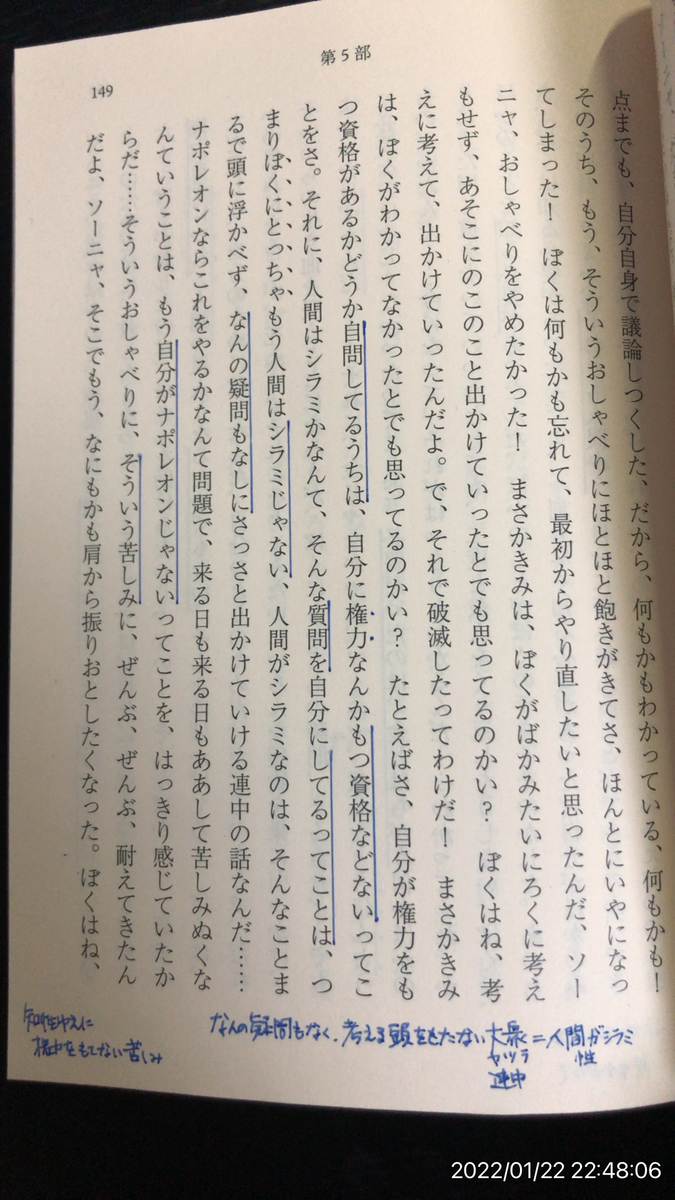 第5部
149
点までも、自分自身で議論しつくした、だから、何もかもわかっている、何もかも！
そのうち、もう、そういうおしゃべりにほとほと飽きがきてさ、ほんとにいやになっ
てしまった！　ぼくは何もかも忘れて、最初からやり直したいと思ったんだ、ソー
ニャ、おしゃべりをやめたかった！　まさかきみは、ぼくがばかみたいにろくに考え
もせず、あそこにのこのこと出かけていったとでも思ってるのかい？　ぼくはね、考
えに考えて、出かけていったんだよ。で、それで破滅したってわけだ！　まさかきみ
は、ぼくがわかってなかったとでも思ってるのかい？　たとえばさ、自分が権力をも
つ資格があるかどうか自問してるうちは、自分に権力なんかもつ資格などないってこ
とをさ。それに、人間はシラミかなんて、そんな質問を自分にしてるってことは、つ
まりぼくにとっちゃもう人間はシラミじゃない、人間がシラミなのは、そんなことま
るで頭に浮かべず、なんの疑問もなしにさっさと出かけていける連中の話なんだ……
ナポレオンならこれをやるかなんて問題で、来る日も来る日もああして苦しみぬくな
んていうことは、もう自分がナポレオンじゃないってことを、はっきり感じていたか
らだ……そういうおしゃべりに、そういう苦しみに、ぜんぶ、ぜんぶ、耐えてきたん
だよ、ソーニャ、そこでもう、なにもかも肩から振りおとしたくなった。ぼくはね、
なんの疑問もなく、考える頭をもたない大衆＝人間がシラミ
ヤツラ
連中
性
知性ゆえに
をもてない苦しみ
2022/01/22 22:48:06